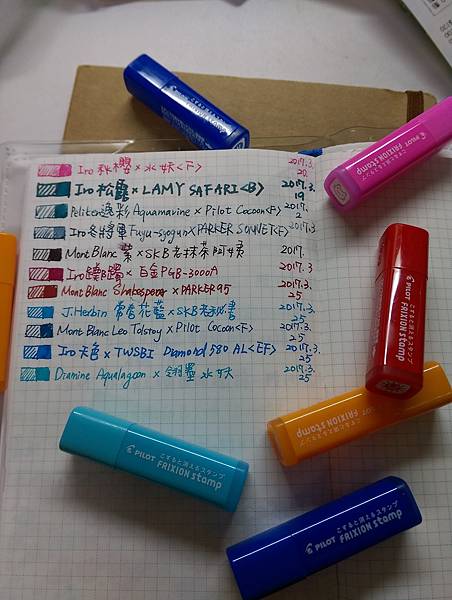 Iro 秋櫻 × 水妖<F> 2017.3.20
Iro 松露 × LAMY SAFARI<B> 2017.3.19
Pelikan逸彩 Aquamarine × Pilot Cocoon<F> 2017.2
Iro 冬將軍 Fuyu-syogun × PARKER SONNET<F> 2017.3.
Mont Blanc 紫 × SKB 老抹茶阿嬤 2017.
Iro 躑躅 × 百金 PGB-3000A 2017.3
Mont Blanc Shakespear × PARKER 95 2017.3.25
J.Herbin 常春花藍 × SKB老秘書 2017.3.25
Mont Blanc Leo Tolstoy × Pilot Cocoon<F> 2017.3.25
Iro 天色 × TWSBI Diamond 580 AL<EF> 2017.3.25
Diamine Aqualagoon × 鋼墨 水妖 2017.3.25
こすると消えるスタンプ
PILOT FRIXION stamp
こすると消えるスタンプ
PILOT FRIXION stamp
こすると消えるスタンプ
PILOT FRIXION stamp
こすると消えるスタンプ
FRIXION stamp
こすると消えるスタンプ
PILOT FRIXION stamp